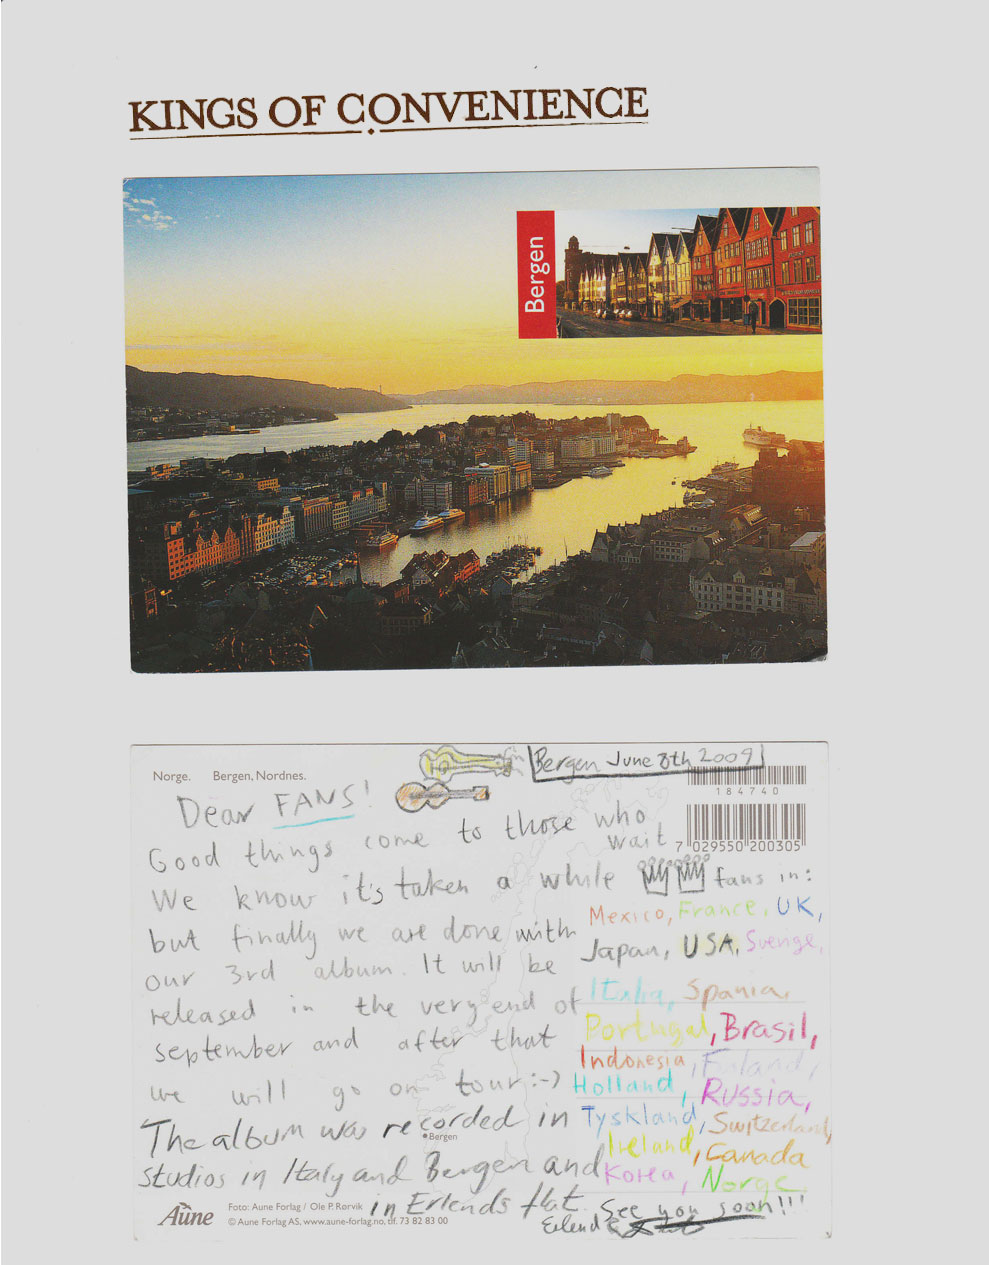 KINGS OF CONVENIENCE
Bergen
Norge. Bergen, Nordnes.
Bergen June 8th 2009
184740
7 029550 200305
Dear FANS!
Good things come to those who
wait
We know it's taken a while
but finally we are done with
our 3rd album. It will be
released in the very end of
september and after that
we will go on tour :-)
The album was recorded in
Bergen
studios in Italy and Bergen and
in Erlends flat.
fans in:
Mexico, France, UK,
Japan, USA, Sverige,
Italia, Spania,
Portugal, Brasil,
Indonesia, Finland,
Holland, Russia,
Tyskland, Switzerland,
Ireland, Canada
Korea, Norge
See you soon!!!
Erlend &
Aune
Foto: Aune Forlag / Ole P. Rørvik
© Aune Forlag AS, www.aune-forlag.no, tlf. 73 82 83 00